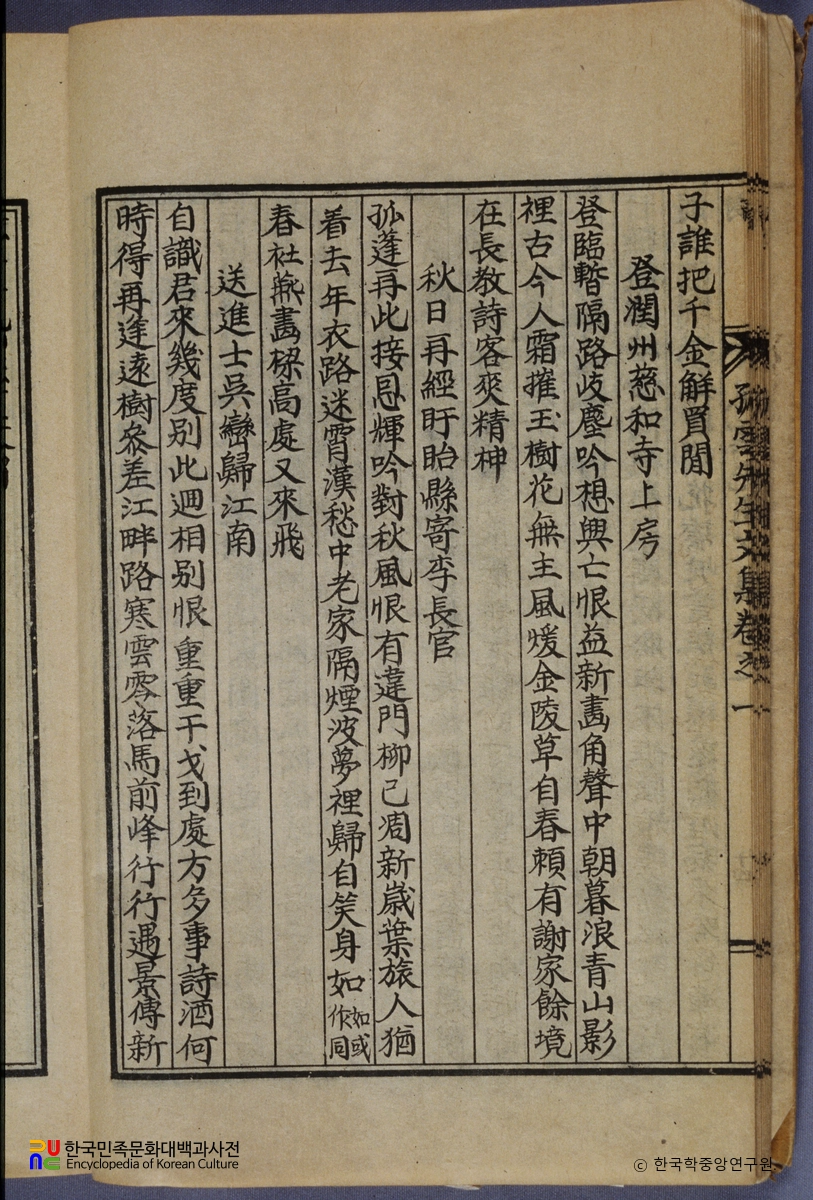 子誰把千金解買閒
登潤州慈和寺上房
登臨暫隔路岐塵吟想興亡恨益新畵角聲中朝暮浪青山影
裡古今人霜摧玉樹花無主風煖金陵草自春賴有謝家餘境
在長敎詩客爽精神
秋日再經盱眙縣寄李長官
孤蓬再此接恩輝吟對秋風恨有違門柳已凋新歲葉旅人猶
着去年衣路迷霄漢愁中老家隔煙波夢裡歸自笑身如如或作同
春社燕畵樑高處又來飛
送進士吳巒歸江南
自識君來幾度別此迴相別恨重重干戈到處方多事詩酒何
時得再逢遠樹參差江畔路寒雲零落馬前峰行行遇景傳新
孤雲先生文集卷之一
한국민족문화대백과사전
Encyclopedia of Korean Culture
ⓒ 한국학중앙연구원